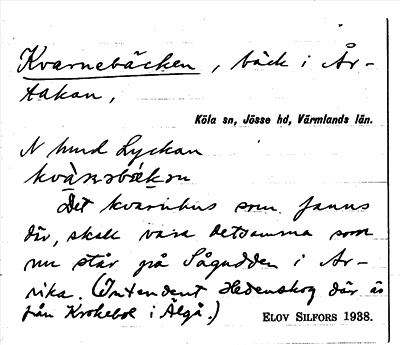 Kvarnebäcken, bäck i År-
takan,
Köla sn, Jösse hd, Värmlands län.
N hmd Lyckan
Det kvarnhus som fanns
där, skall vara detsamma som
nu står på Sågudden i Ar-
vika. (Intendent Hedenskog där är
från Krokebol i Älgå.)
ELOV SILFORS 1938.